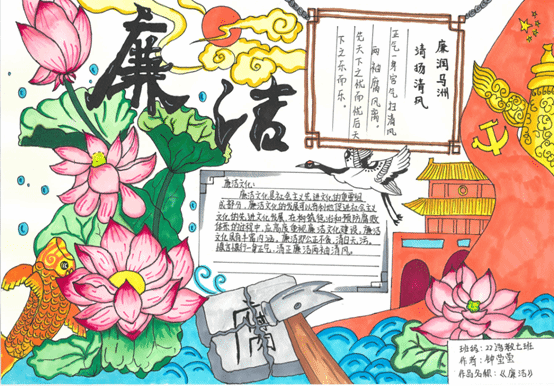 廉洁
廉润马洲
清风
正气一身官气扫清风
两袖腐风离。
先天下之忧而忧后天
下之乐而乐。
廉洁文化:
廉洁文化是社会主义先进文化的重要组
成部分,廉洁文化的发展可以有利地促进社会主义
文化的先进文化发展,在构筑统治和预防腐败
体系的过程中,应高度重视廉洁文化建设。廉洁
文化具有丰富内涵。廉洁即公正不贪,清白无污。
一身正气,清正廉洁两袖清风。
班级:22 七班
作者:钟莹莹
作品名称:《廉洁》